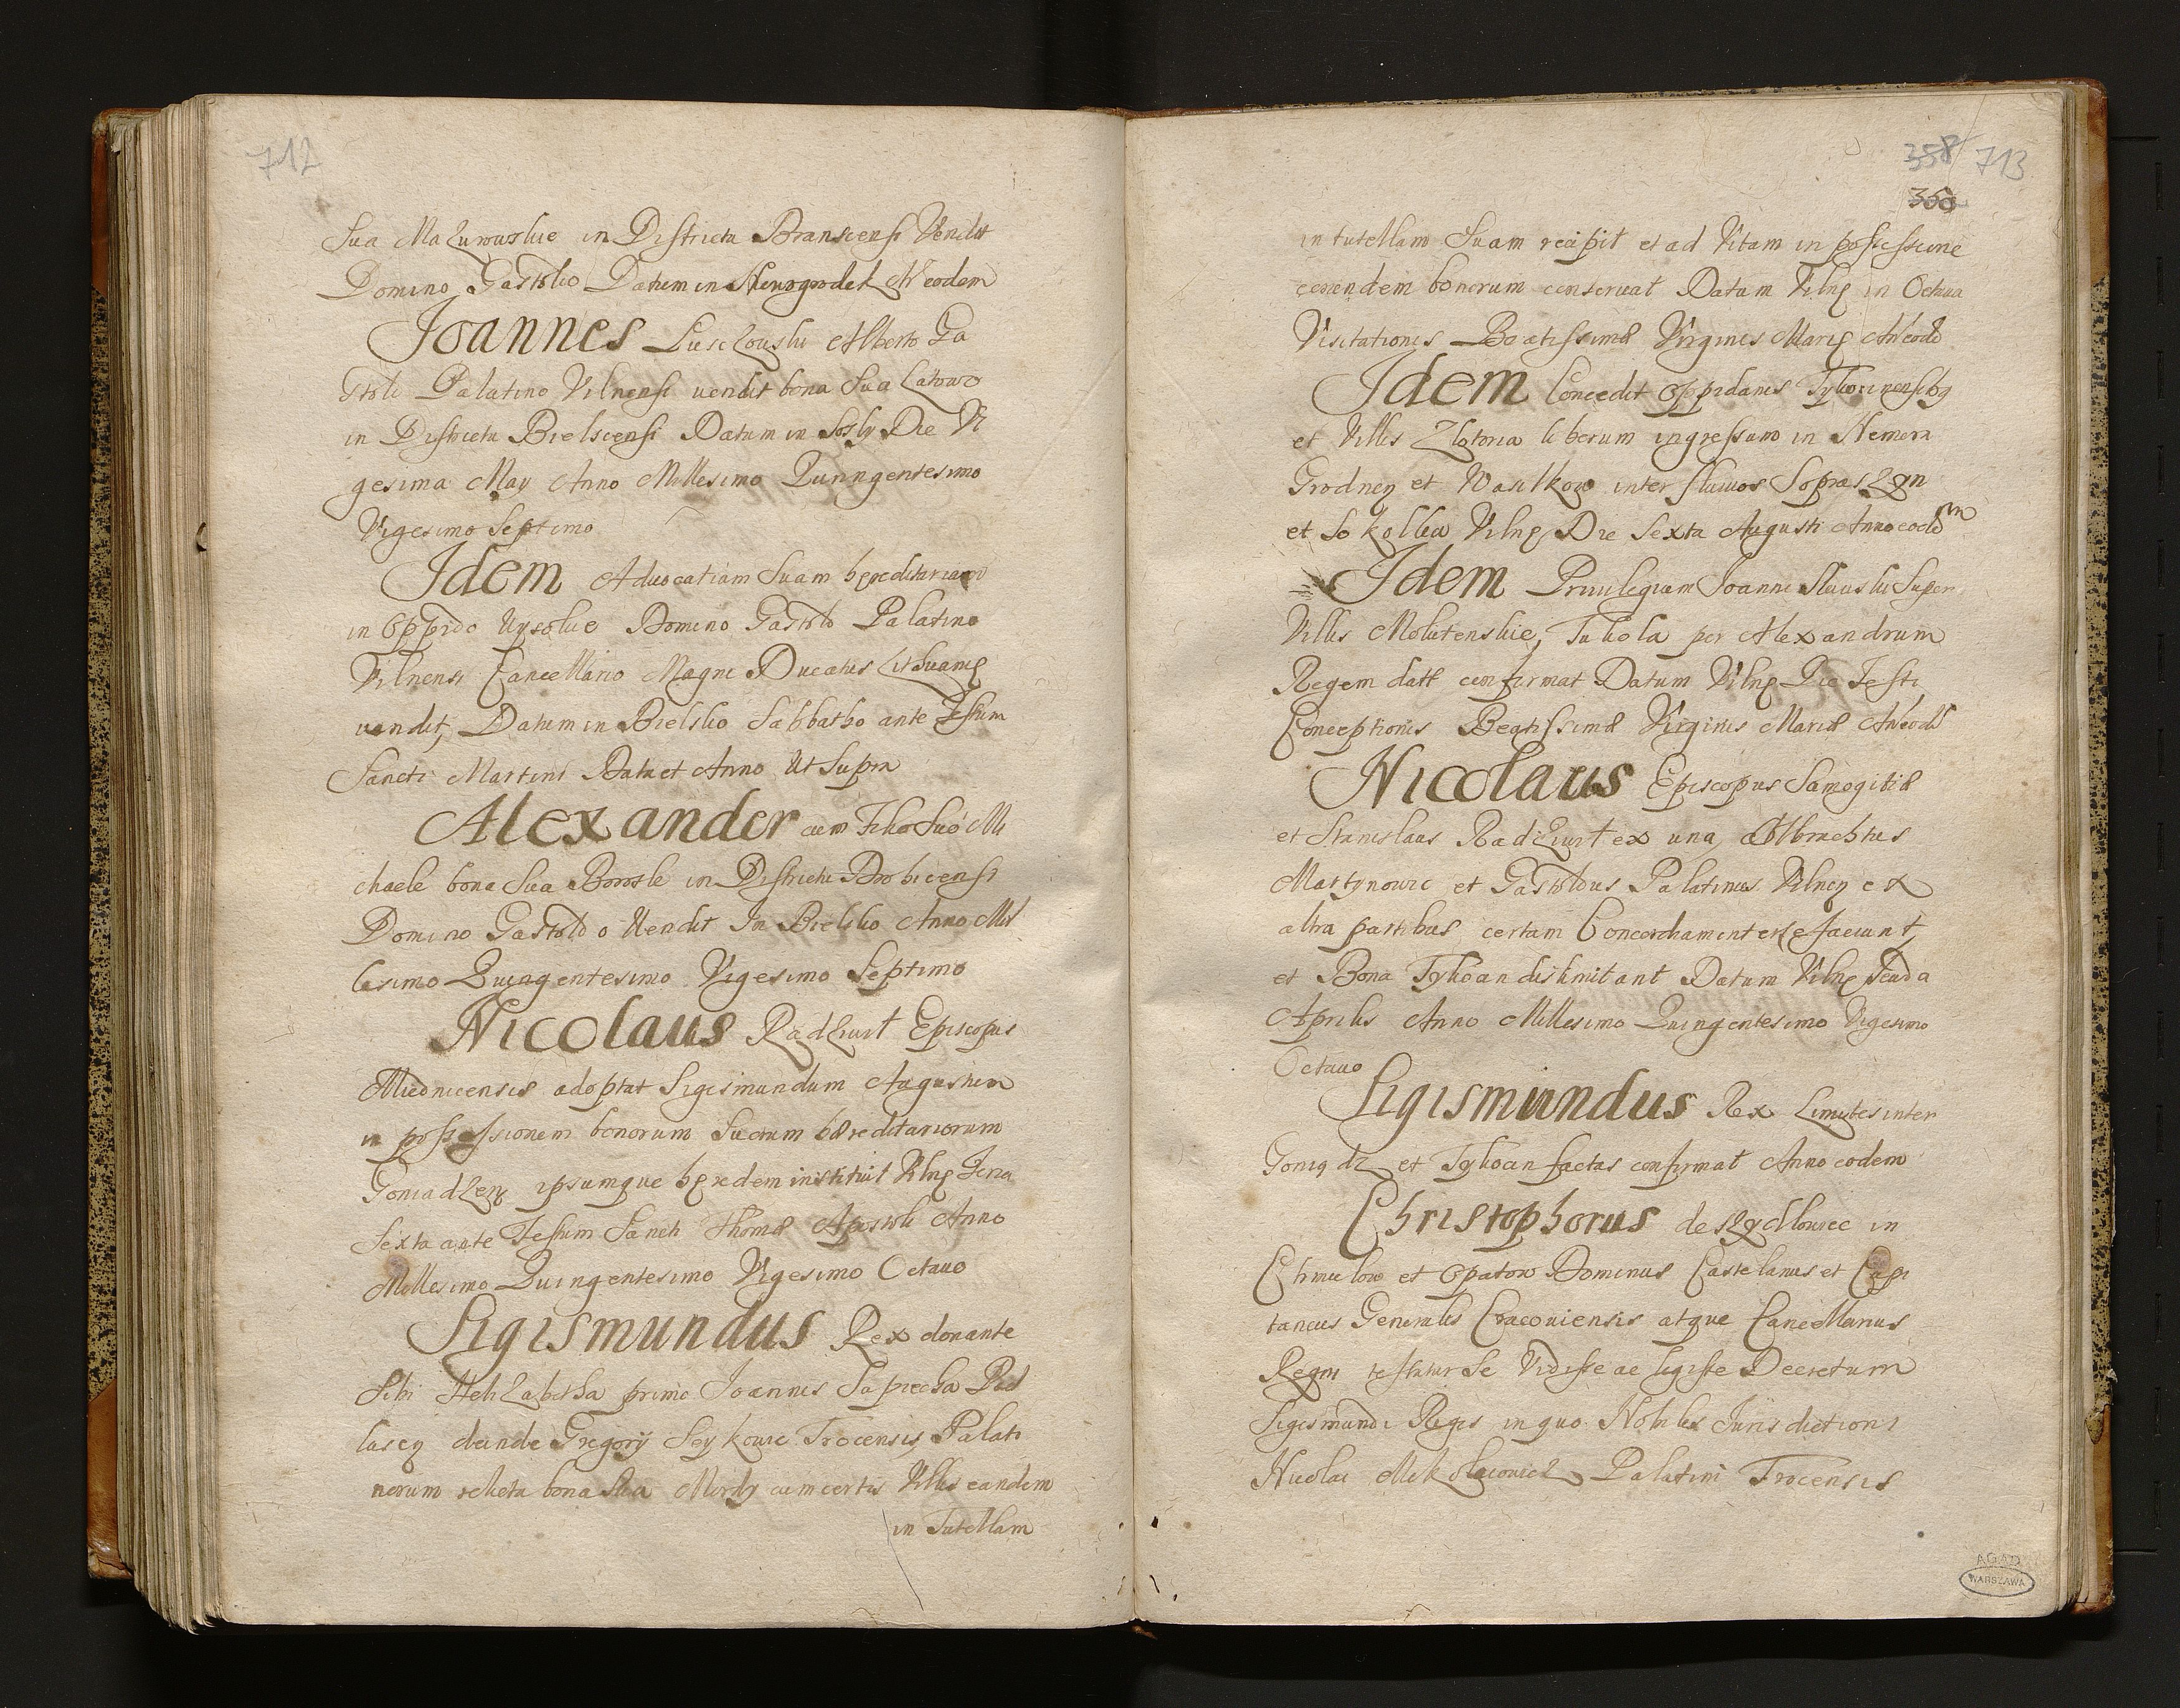 712
Sua Mazurowskie in Districtu Branscensi Vendit
Domino Gastoldo Datum in Nowogrodek A° eodem
Joannes Luszowski Alberto Ga
stoldi Palatino Vilnensi uendit bona Sua Latowo
in Districtu Bielscensi Datum in Sosly Die Vi
gesima May Anno Millesimo Quingentesimo
Vigesimo Septimo
Idem Aduocatiam Suam hęreditariam
in Oppido Domino Gastoldo Palatino
Vilnensi Cancellario Magni Ducatus Lithuanię
vendit, Datum in Bielsko Sabbatho ante Festum
Sancti Martini Datu et Anno Ut Supra
Alexander cum Filio Suo Mi
chaele bona Sua Dorosle in Districtu Drohicensi
Domino Gastoldo Uendit In Bielsko Anno Mil
lesimo Quingentesimo Vigesimo Septimo
Nicolaus Radziuił Episcopus
Miednicensis adoptat Sigismundum Augustum
in possessionem bonorum Suorum hæreditariorum
Goniadzen ipsumque hęredem instituit Vilnę Feria
Sexta ante Festum Sancti Thomæ Apostoli Anno
Millesimo Quingentesimo Vigesimo Octauo
Sigismundus Rex donante
Sibi Helizabetha primo Joannis Sapiecha Pod
lascen deinde Gregorij Trocensis Palati
norum relicta bona Sua cum certis Villis eandem
in Tutellam
358 713
360
in tutellam Suam recipit et ad Vitam in possessione
eorundem bonorum conseruat Datum Vilnę in Octaua
Visitationis Beatissimæ Virginis Marię A° eodē
Idem Concedit Oppidanis Tykocinensibꝫ
et Villis Zlotoria liberum ingressum in Nemora
Grodnen et Wasilkow inter fluuios Soprasząn
et Sokolka Vilnę Die Sexta Augusti Anno eodēm
Idem Priuilegium Joanni Super
Villis Molutenskie, Takola per Alexandrum
Regem datæ confirmat Datum Vilnę Die Festi
Conceptionis Beatissimæ Virginis Mariæ A° eodē
Nicolaus Episcopus Samogitiæ
et Stanislaus Radziuił ex una, Albrachtus
Martynowic et Gastoldus Palatinus Vilnen ex
altra partibus certam Concordiam inter se faciunt,
et Bona Tykocin dislimitant Datum Vilnę Secunda
Aprilis Anno Millesimo Quingentesimo Vigesimo
Octauo
Sigismundus Rex Limites inter
Goniądz et Tykocin factas confirmat Anno eodem
Christophorus de Szydlowiec in
Chmielow et Opatow Dominus Castelanus et Capi
taneus Generalis Cracouiensis atque Cancellarius
Regni testatur Se Vidisse ac legisse Decretum
Sigismundi Regis in quo Nobiles Jurisdictioni
Nicolai Mikolaiowicz Palatini Trocensis
AGAD
WARSZAWA